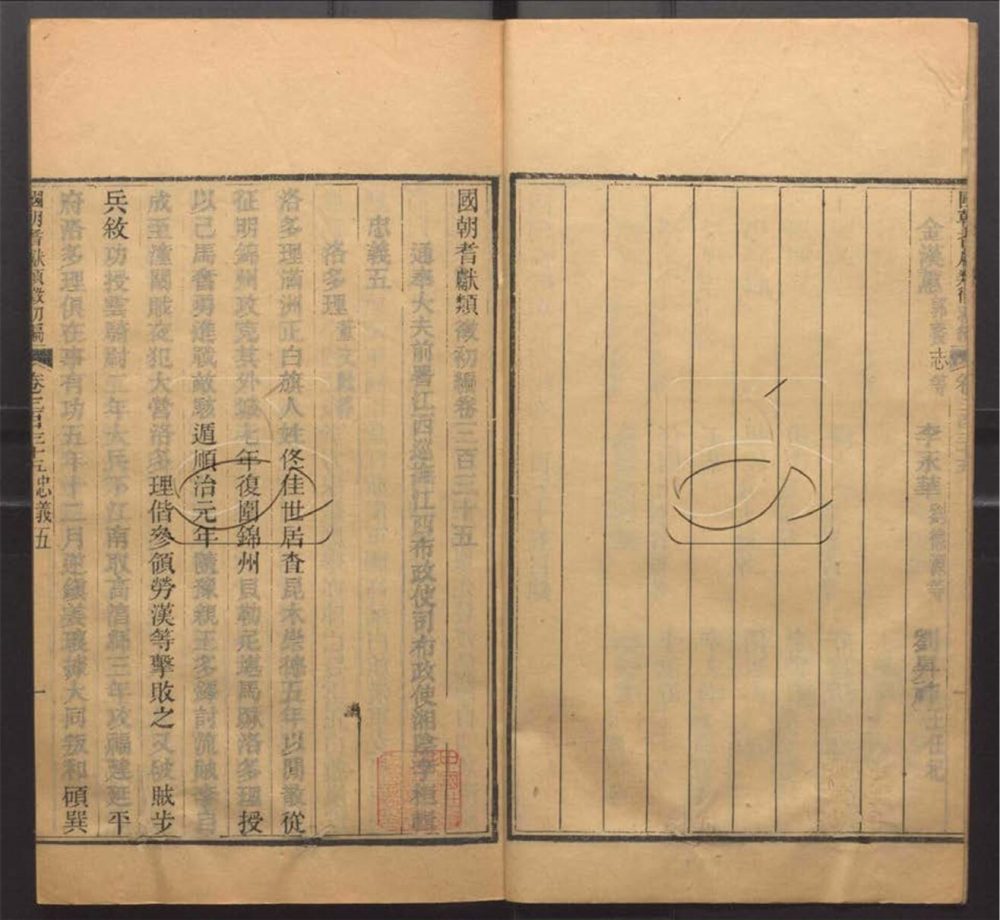 金漢蕙 郭養志等 李永華 劉德溥等 劉昇祚 王任元
國朝耆獻類徵初編卷三百三十五
通奉大夫前署江西巡撫江西布政使司布政使湘陰李桓輯
忠義五
洛多理
洛多理滿洲正白旗人姓佟佳世居査昆木崇德五年以閒散從
征明錦州攻克其外城七年復圍錦州貝勒尼堪馬蹶洛多理授
以己馬奮勇進戰敵駭遁順治元年隨豫親王多鐸討流賊李自
成至潼關賊夜犯大營洛多理偕參領勞漢等擊敗之又破賊步
兵敘功授雲騎尉二年大兵下江南取高淯縣三年攻福建延平
府洛多理俱在事有功五年十二月逆鎮姜瓖據大同叛和碩巽
國朝耆獻類徵初編 卷三百三十五 忠義五 一